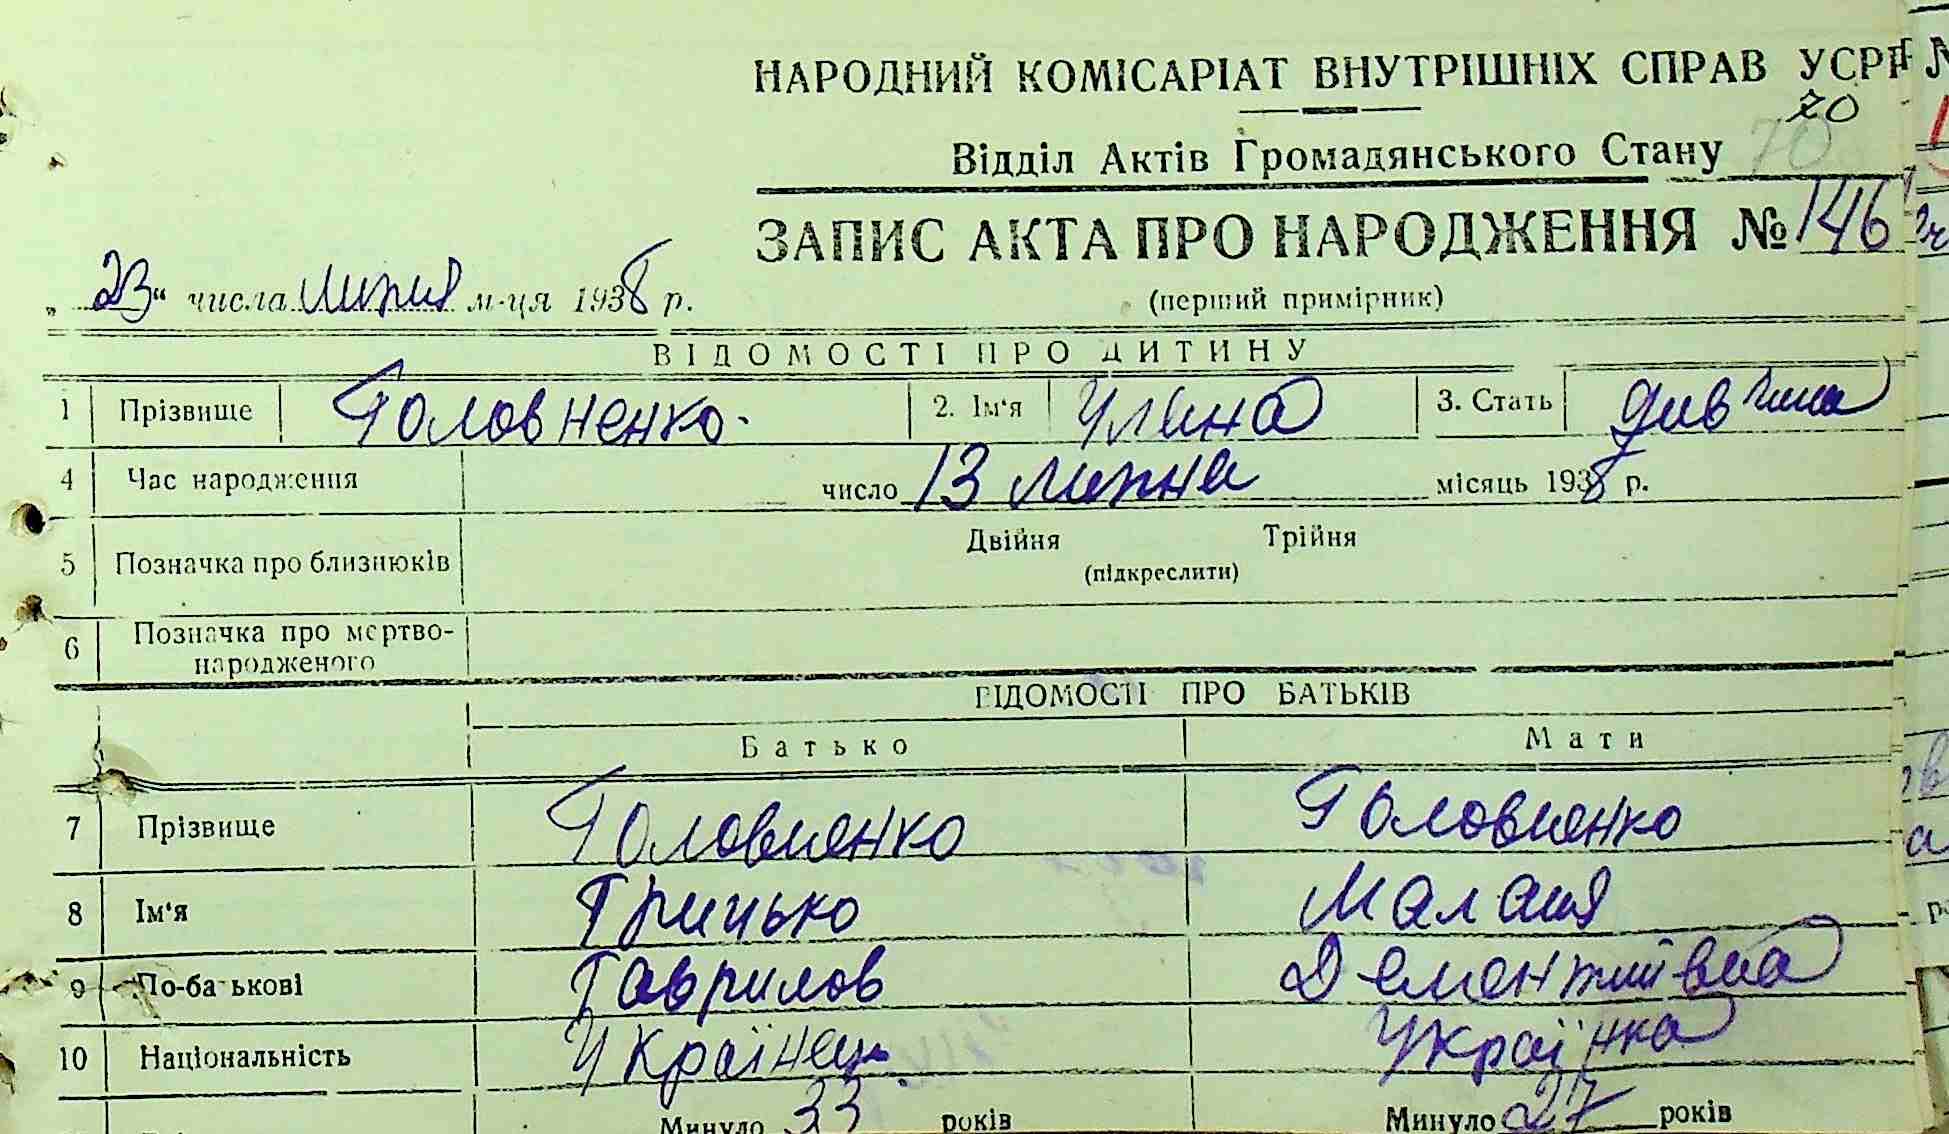 НАРОДНИЙ КОМІСАРІАТ ВНУТРІШНІХ СПРАВ УСРР
70
Відділ Актів Громадянського Стану 70
ЗАПИС АКТА ПРО НАРОДЖЕННЯ № 146
„23“ числа липня м-ця 1938 р. (перший примірник)
ВІДОМОСТІ ПРО ДИТИНУ
1 Прізвище Головненко. 2. Ім‘я Уляна 3. Стать дивчина
4 Час народження число 13 липня місяць 1938 р.
5 Позначка про близнюків Двійня Трійня
(підкреслити)
6 Позначка про мертво-
народженого
ВІДОМОСТІ ПРО БАТЬКІВ
Батько Мати
7 Прізвище Головненко Головненко
8 Ім‘я Грицько Малашя
9 По-батькові Гаврилов Дементиївна
10 Національність Українець Українка
Минуло 33 років Минуло 27 років